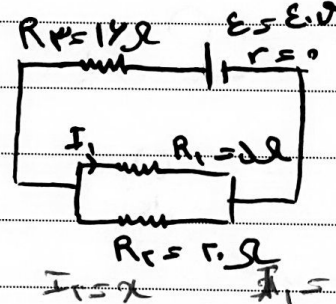 R۳=۱۶Ω ε=۴۰V
r=۰
I۱ R۱=۵Ω
R۲=۲۰Ω
I۲=x I۱=